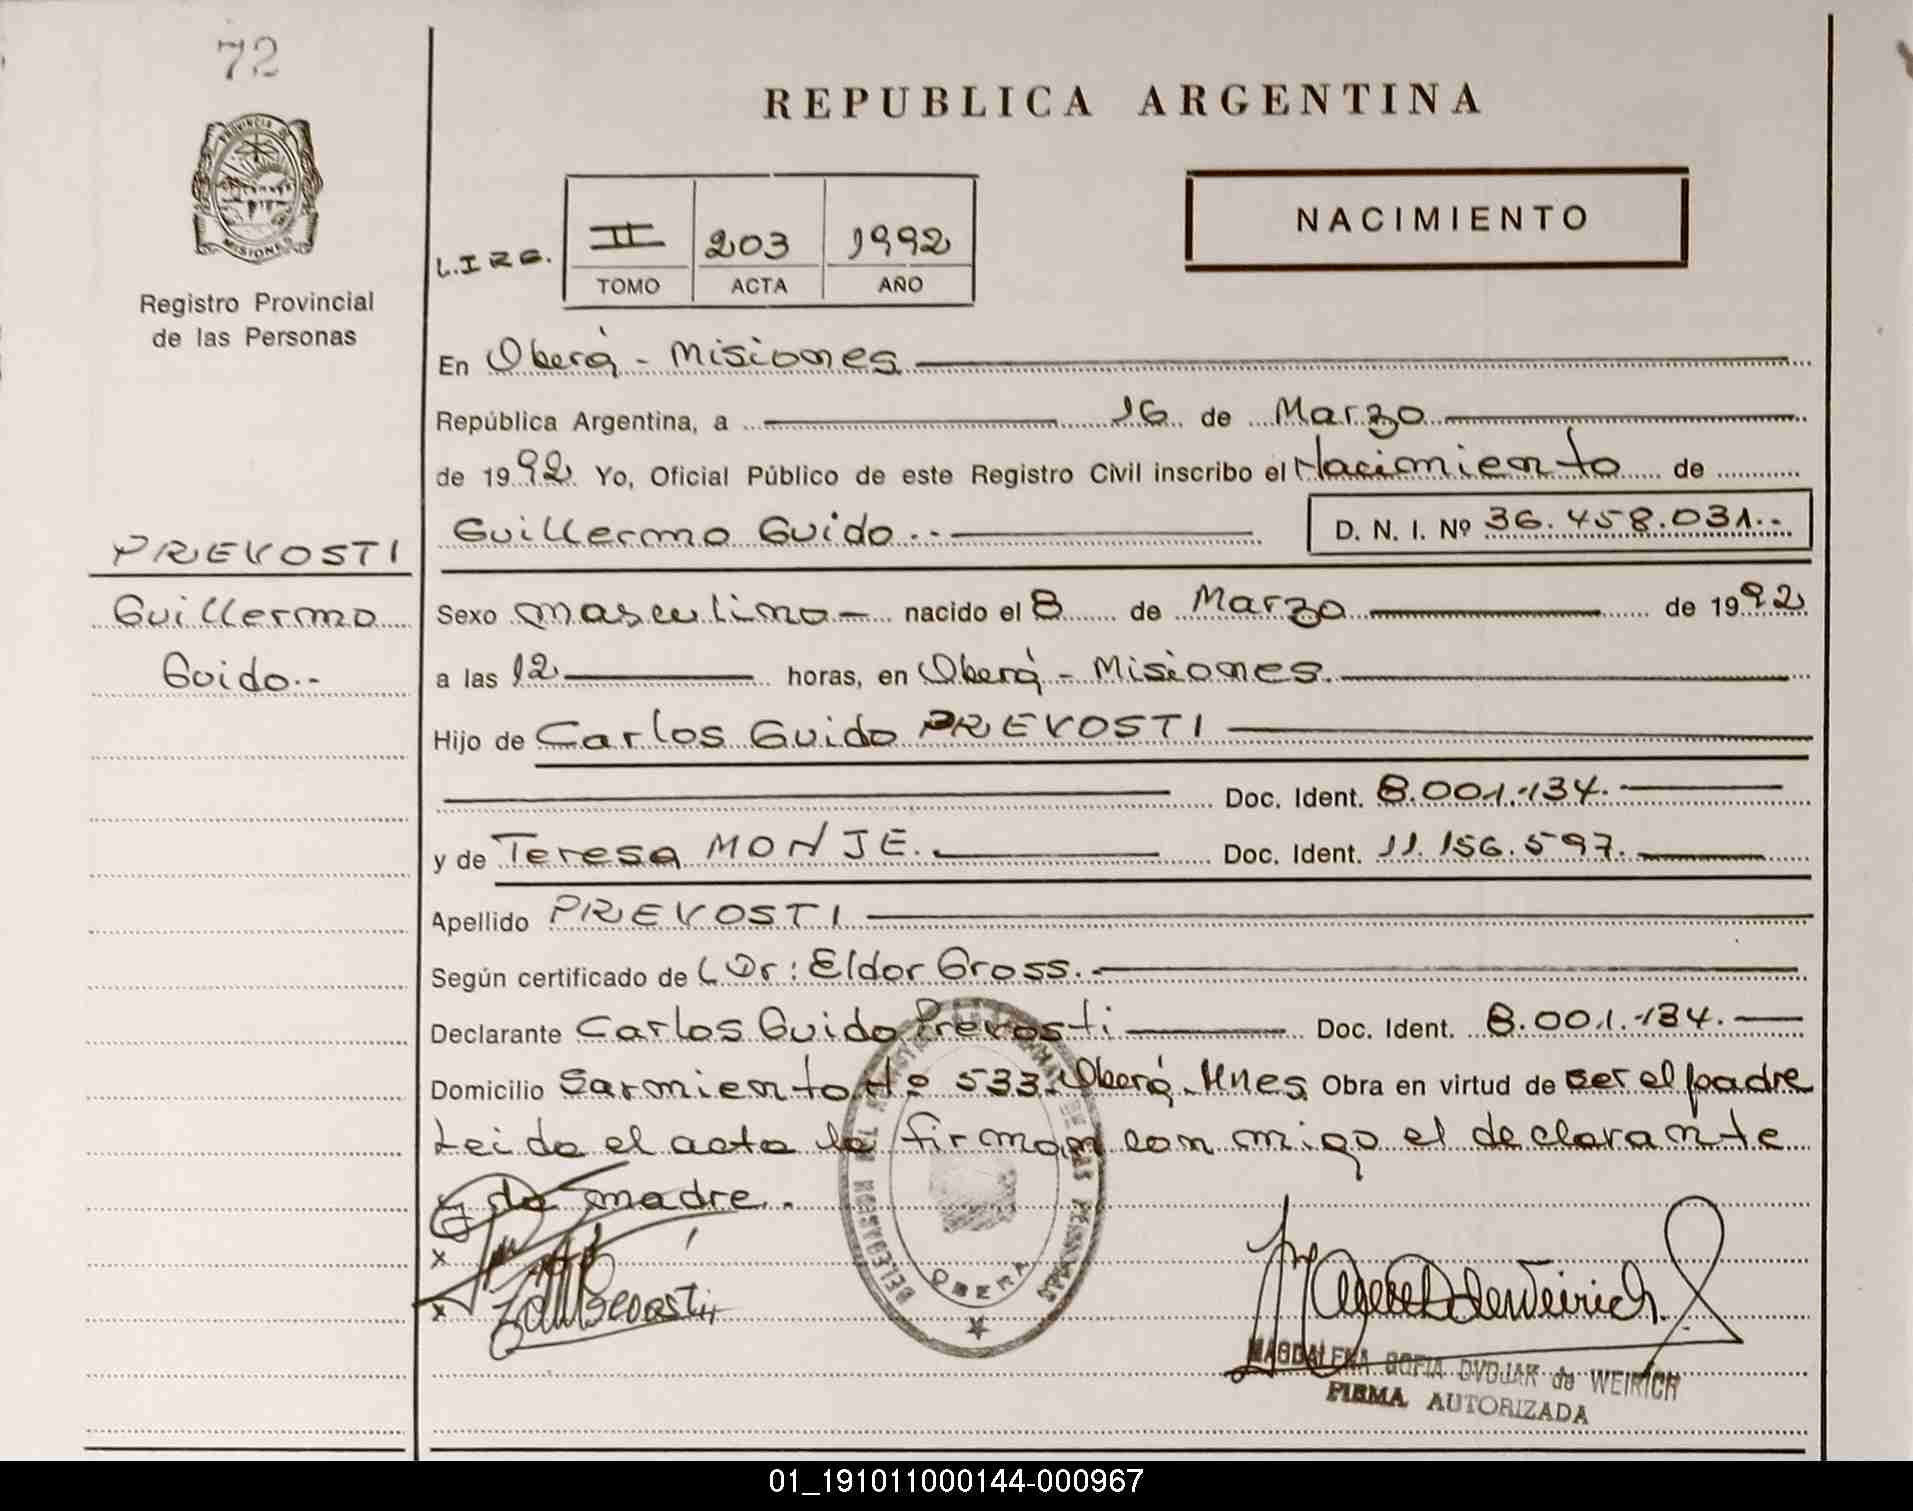 72
PROVINCIA DE
MISIONES
Registro Provincial
de las Personas
REPUBLICA ARGENTINA
NACIMIENTO
II 203 1992
TOMO ACTA AÑO
En Oberá - Misiones
República Argentina, a 16 de Marzo
de 1992 Yo, Oficial Público de este Registro Civil inscribo el Nacimiento de
Guillermo Guido.- D. N. I. Nº 36.458.031.-
PREVOSTI
Guillermo
Guido.-
Sexo masculino - nacido el 8 de Marzo de 1992
a las 12 horas, en Oberá - Misiones.
Hijo de Carlos Guido PREVOSTI
Doc. Ident. 8.001.134.
y de Teresa MONJE. Doc. Ident. 11.156.597.
Apellido PREVOSTI
Según certificado de Dr: Eldor Gross.-
Declarante Carlos Guido Prevosti Doc. Ident. 8.001.134.
Domicilio Sarmiento Nº 533-Oberá-Mnes Obra en virtud de ser el padre
Leida el acta la firman con migo el declarante
y la madre.-
x
x
OBERA
MAGDALENA SOFIA DVOJAK de WEIRICH
FIRMA AUTORIZADA
01_191011000144-000967